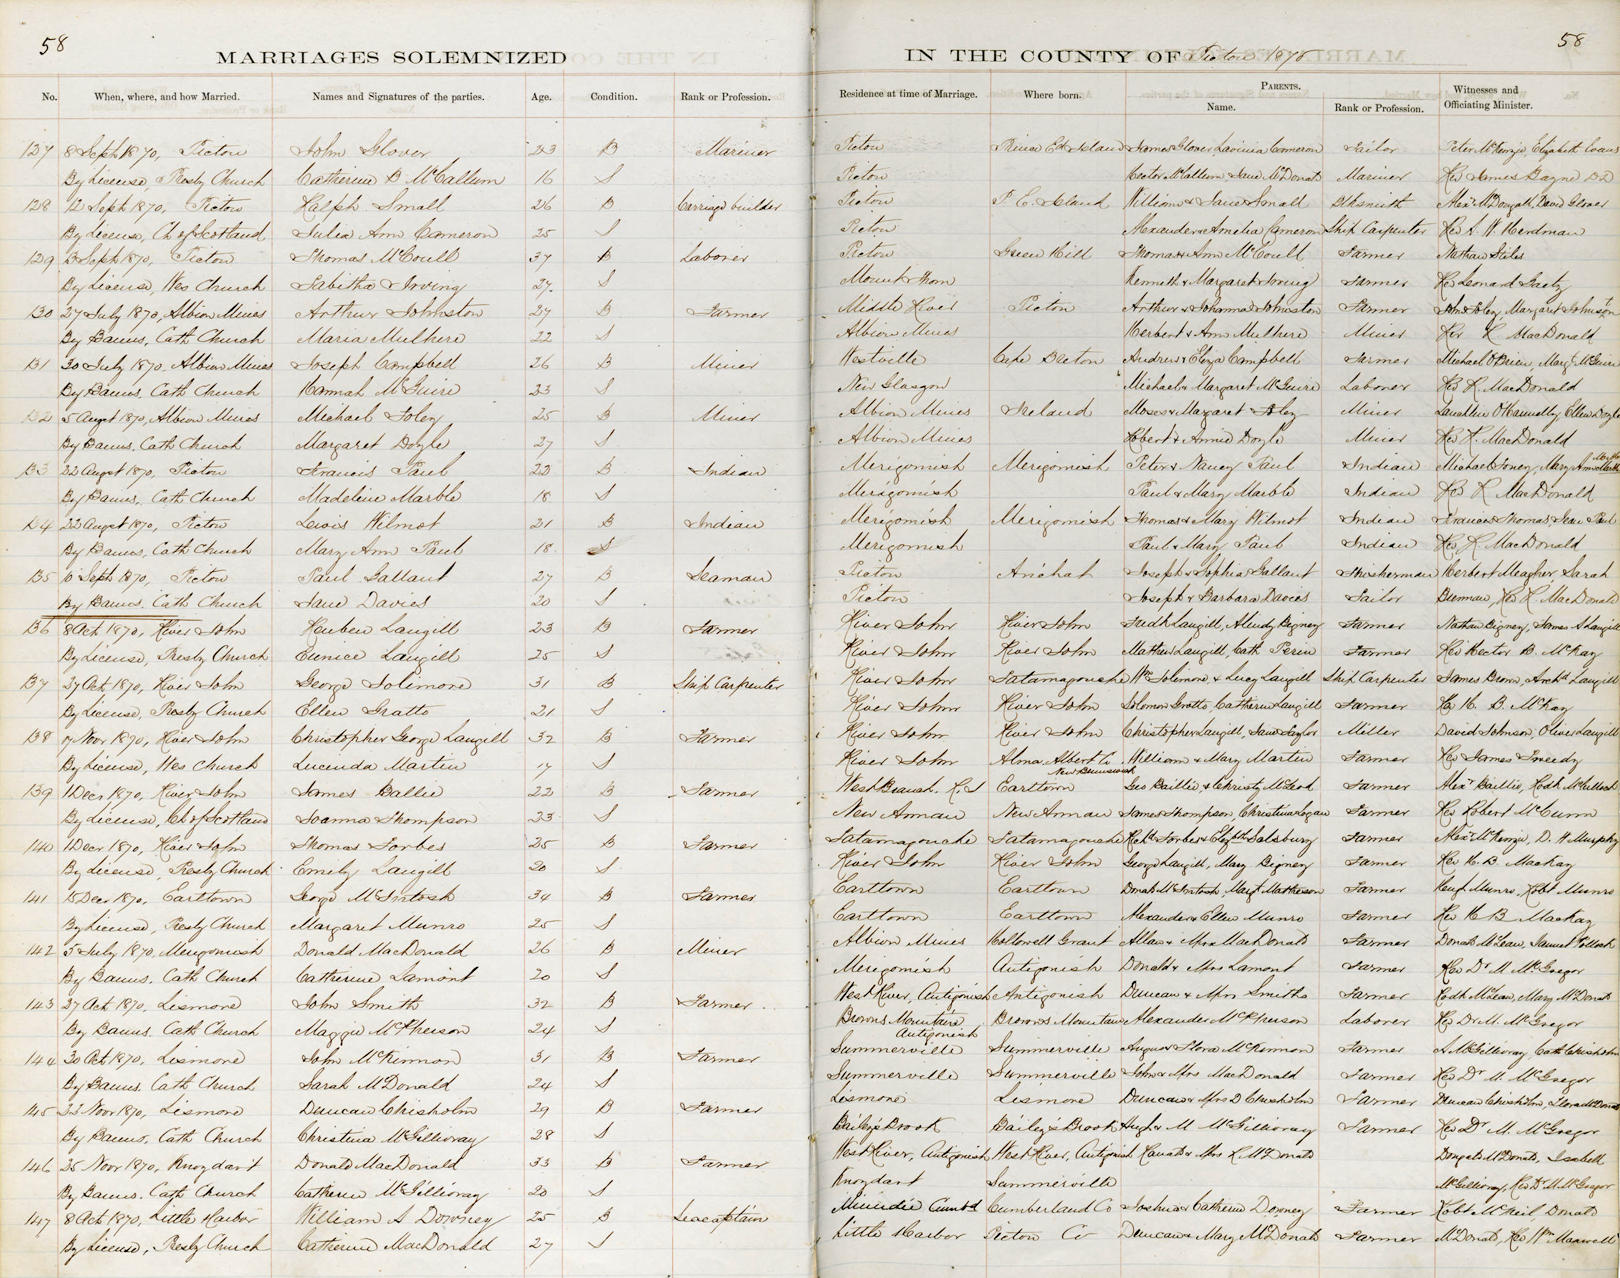 58
58
MARRIAGES SOLEMNIZED IN THE COUNTY OF Pictou 1870
No. When, where, and how Married. Names and Signatures of the parties. Age. Condition. Rank or Profession. Residence at time of Marriage. Where born. PARENTS. Name. Rank or Profession. Witnesses and Officiating Minister.
127 8 Sept 1870, Pictou John Glover 23 B Mariner Pictou Prince Ed Island James Glover, Lavinia Cameron Sailor Peter McKenzie, Elizabeth Evans
By License, Presby Church Catherine B McCallum 16 S Pictou Hector McCallum & Jane McDonald Mariner Rev James Bayne DD
128 12 Sept 1870, Pictou Ralph Small 26 B Carriage builder Pictou P. E. Island William & Jane Small Blksmith Alexr McDougall, David Glover
By License, Ch of Scotland Julia Ann Cameron 25 S Pictou Alexander & Amelia Cameron Ship Carpenter Rev A. W. Herdman
129 13 Sept 1870, Pictou Thomas McCoull 37 B Laborer Pictou Green Hill Thomas & Ann McCoull Farmer Nathan Stiles
By License, Wes Church Tabitha Irving 27 S Mount Thom Kenneth & Margaret Irving Farmer Rev Leonard Gaetz
130 27 July 1870, Albion Mines Arthur Johnston 27 B Farmer Middle River Pictou Arthur & Johanna Johnston Farmer John Foley, Margaret Johnson
By Banns, Cath Church Maria Mulhere 22 S Albion Mines Herbert & Ann Mulhere Miner Rev R MacDonald
131 30 July 1870, Albion Mines Joseph Campbell 26 B Miner Westville Cape Breton Andrew & Eliza Campbell Farmer Michael O'Brien, Margt McGuire
By Banns, Cath Church Hannah McGuire 23 S New Glasgow Michael & Margaret McGuire Laborer Rev R. MacDonald
132 5 August 1870, Albion Mines Michael Foley 25 B Miner Albion Mines Ireland Moses & Margaret Foley Miner Ellen Doyle
By Banns, Cath Church Margaret Doyle 27 S Albion Mines Robert & Annie Doyle Miner Rev R. MacDonald
133 22 August 1870, Pictou Francis Paul 22 B Indian Merigomish Merigomish Peter & Nancy Paul Indian Michael Toney, Mary Ann
By Banns, Cath Church Madeline Marble 18 S Merigomish Paul & Mary Marble Indian Rev R MacDonald
134 22 August 1870, Pictou Lewis Wilmot 21 B Indian Merigomish Merigomish Thomas & Mary Wilmot Indian Francis Thomas, Jean Paul
By Banns, Cath Church Mary Ann Paul 18 S Merigomish Paul & Mary Paul Indian Rev R MacDonald
135 10 Sept 1870, Pictou Paul Gallant 27 B Seaman Pictou Arichat Joseph & Sophia Gallant Fisherman Herbert Meagher, Sarah
By Banns, Cath Church Jane Davies 20 S Pictou Joseph & Barbara Davies Sailor Brennan, Rev R. MacDonald
136 8 Oct 1870, River John Reuben Langill 23 B Farmer River John River John Fredk Langill, Bigney Farmer Nathan Bigney, James A Langill
By License, Presby Church Eunice Langill 25 S River John River John Mathew Langill, Cath Perrin Farmer Rev Hector B. McKay
137 27 Oct 1870, River John George Solimore 31 B Ship Carpenter River John Tatamagouche Wm Solimore & Lucy Langill Ship Carpenter James Brown, Archd Langill
By License, Presby Church Ellen Gratto 21 S River John River John Solomon Gratto, Catherine Langill Farmer Rev H. B. McKay
138 9 Novr 1870, River John Christopher George Langill 32 B Farmer River John River John Christopher Langill, Jane Taylor Miller David Johnson, Oliver Langill
By License, Wes Church Lucinda Martin 17 S River John Alma Albert Co New Brunswick William & Mary Martin Farmer Rev James Tweedy
139 1 Decr 1870, River John James Ballie 22 B Farmer West Branch, R. J Earltown Geo Baillie & Christy McLeod Farmer Alexr Baillie, Rodk McCulloch
By License, Ch of Scotland Joanna Thompson 23 S New Annan New Annan James Thompson, Christina Logan Farmer Rev Robert McCunn
140 1 Decr 1870, River John Thomas Forbes 25 B Farmer Tatamagouche Tatamagouche Forbes & Elizbth Salsbury Farmer Alexr McKenzie, D. W. Murphy
By License, Presby Church Emily Langill 20 S River John River John George Langill, Mary Bigney Farmer Rev H. B. MacKay
141 15 Decr 1870, Earltown George McIntosh 34 B Farmer Earltown Earltown Donald McIntosh, Margt Matheson Farmer Hugh Munro, Robt Munro
By License, Presby Church Margaret Munro 25 S Earltown Earltown Alexander & Ellen Munro Farmer Rev H B. MacKay
142 5 July 1870, Merigomish Donald MacDonald 26 B Miner Albion Mines Hollowell Grant Allan & Mrs MacDonald Farmer Donald McLean, Samuel
By Banns, Cath Church Catherine Lamont 20 S Merigomish Antigonish Donald & Mrs Lamont Farmer Rev Dr M. McGregor
143 27 Oct 1870, Lismore John Smith 32 B Farmer West River, Antigonish Antigonish Duncan & Mrs Smith Farmer Rodk McLean, Mary McDonald
By Banns, Cath Church Maggie McPherson 24 S Browns Mountain, Antigonish Browns Mountain Alexander McPherson Laborer Rev Dr M. McGregor
144 30 Oct 1870, Lismore John McKinnon 31 B Farmer Summerville Summerville Angus & Flora McKinnon Farmer A McGillivray, Cath Chisholm
By Banns, Cath Church Sarah McDonald 24 S Summerville Summerville John & Mrs MacDonald Farmer Rev Dr M. McGregor
145 22 Novr 1870, Lismore Duncan Chisholm 29 B Farmer Lismore Lismore Duncan & Mrs D Chisholm Farmer Duncan Chisholm, Flora McDonald
By Banns, Cath Church Christina McGillivray 28 S Bailey's Brook Bailey's Brook Hugh & M McGillivray Farmer Rev Dr M. McGregor
146 25 Novr 1870, Knoydart Donald MacDonald 33 B Farmer West River, Antigonish West River, Antigonish Ranald & Mrs R. McDonald Dougald McDonald, Isabell
By Banns, Cath Church Catherine McGillivray 20 S Knoydart Summerville McGillivray, Rev Dr M. McGregor
147 8 Oct 1870, Little Harbor William A Downey 25 B Seacaptain Minudie Cumbd Cumberland Co Joshua & Catherine Downey Farmer Robt McNeil Donald
By License, Presby Church Catherine MacDonald 27 S Little Harbor Pictou Co Duncan & Mary McDonald Farmer McDonald, Rev Wm Maxwell